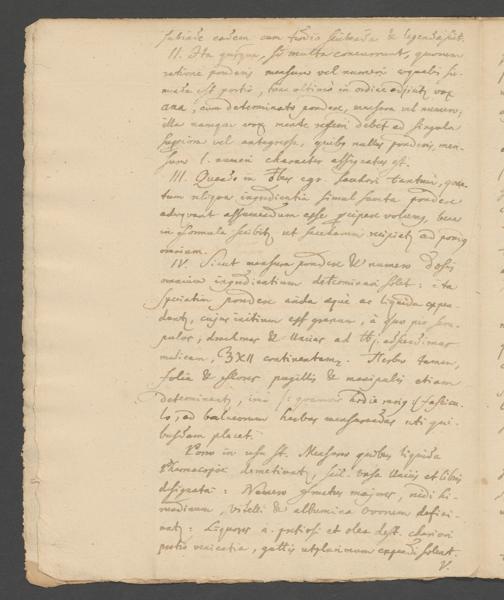 eadem cum scribenda & legenda sit.
II. Ita quoque, si multa concurrunt, quorum
ratione ponderis mensurae vel numeri aequalis su-
menda est portio, tunc ultimo in ordine adjicitur vox
ana, cum determinato pondere, mensura vel numero;
illa namque vox mente referri debet ad singula
superiora vel antegressa, quibus nullus ponderis, men-
surae l. numeri character assignatus est.
III. Quando in tantum, quan-
tum reliqua ingredientia simul sumta pondere
adaequant assumendum esse volumus, tunc
in formula scribitur ut saccharum recipiatur ad pondus
omnium.
IV. Sicut mensura pondere & numero dosis
omnium ingredientium determinari solet: ita
speciatim pondere arida aeque ac liquida expen-
duntur, cujus initium est granum, a quo pro scru-
pulos, drachmas & uncias ad lb, adscendimus
medicam, ℥XII continentem. Herbae tamen,
folia & flores pugillis & manipulis etiam
determinantur, fascicu-
lo, ad balneorum herbas mensurandas uti qui-
busdam placet.
Porro in usu st. Mensurae quibus liquida
Pharmacopoei demetiuntur, scil. vasa unciis et libris
designata: Numero fructus majores,
vitelli & albumina ovorum defini-
untur: Liquores pretiosi et olea dest. chariori
pretio venalia, guttis exprimi solent.
V.